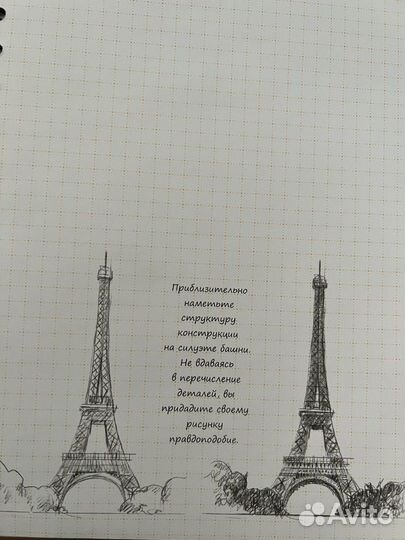 Приблизительно
наметьте
структуру
конструкции
на силуэте башни.
Не вдаваясь
в перечисление
деталей, вы
придадите своему
рисунку
правдоподобие.
Avito